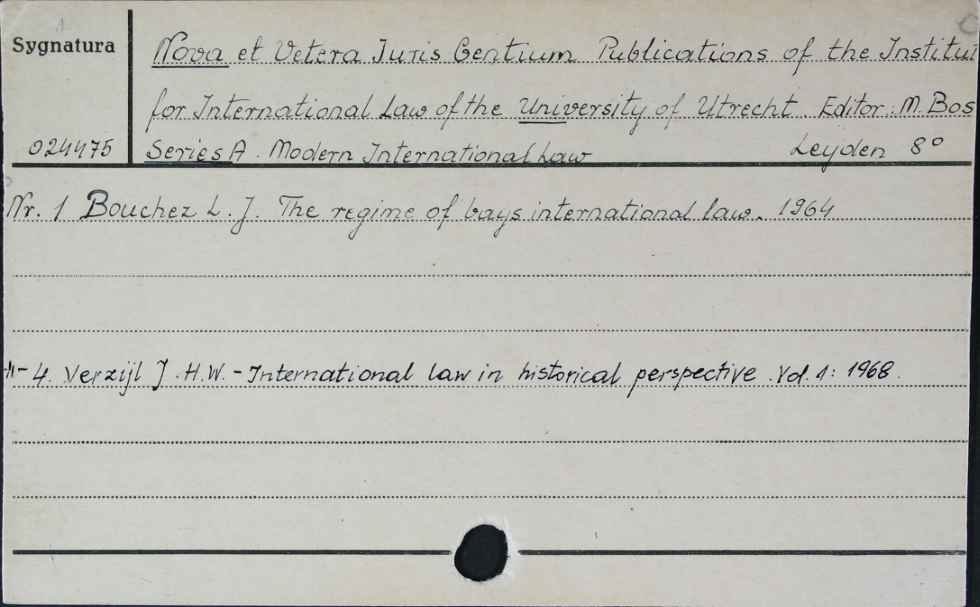 Sygnatura
Nova et Vetera Juris Gentium Publications of the Institut
for International Law of the University of Utrecht. Editor: M. Bos
024475
Series A. Modern International Law Leyden 8°
Nr. 1 Bouchez L. J. The regime of bays international law. 1964
-"- 4. Verzijl J. H.W. - International law in historical perspective. Vol. 1: 1968.